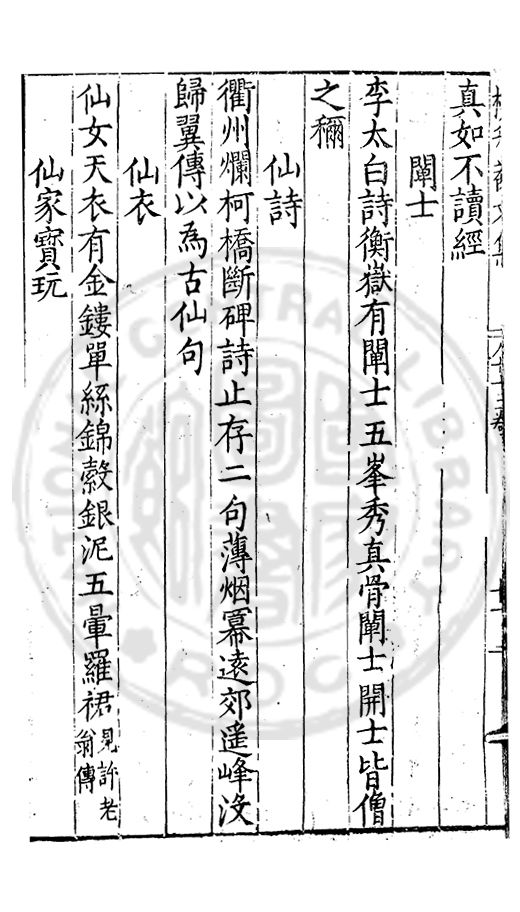 真如不讀經
闡士
李太白詩衡嶽有闡士五峯秀真骨闡士開士皆僧
之稱
仙詩
衢州爛柯橋斷碑詩止存二句薄烟冪遠郊遥峰没
歸翼傳以為古仙句
仙衣
仙女天衣有金鏤單絲錦縠銀泥五暈羅裙見許老翁傳
仙家寳玩